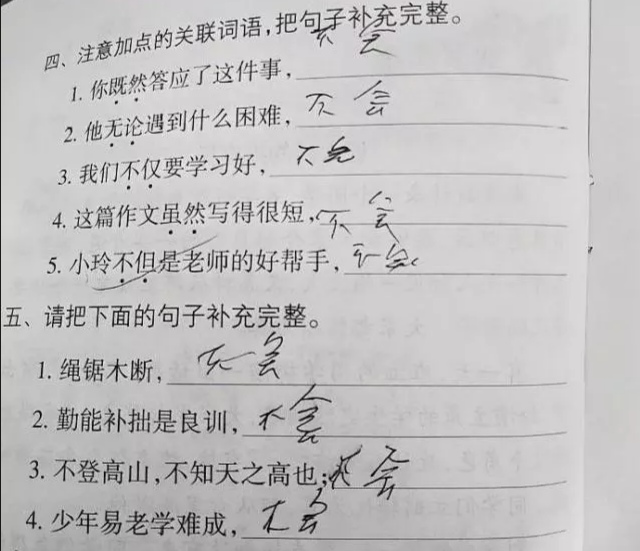 四、注意加点的关联词语,把句子补充完整。
不会
1. 你既然答应了这件事,
2. 他无论遇到什么困难,不会
3. 我们不仅要学习好,不会
4. 这篇作文虽然写得很短,不会
5. 小玲不但是老师的好帮手,不会
五、请把下面的句子补充完整。
1. 绳锯木断,不会
2. 勤能补拙是良训,不会
3. 不登高山,不知天之高也;不会
4. 少年易老学难成,不会